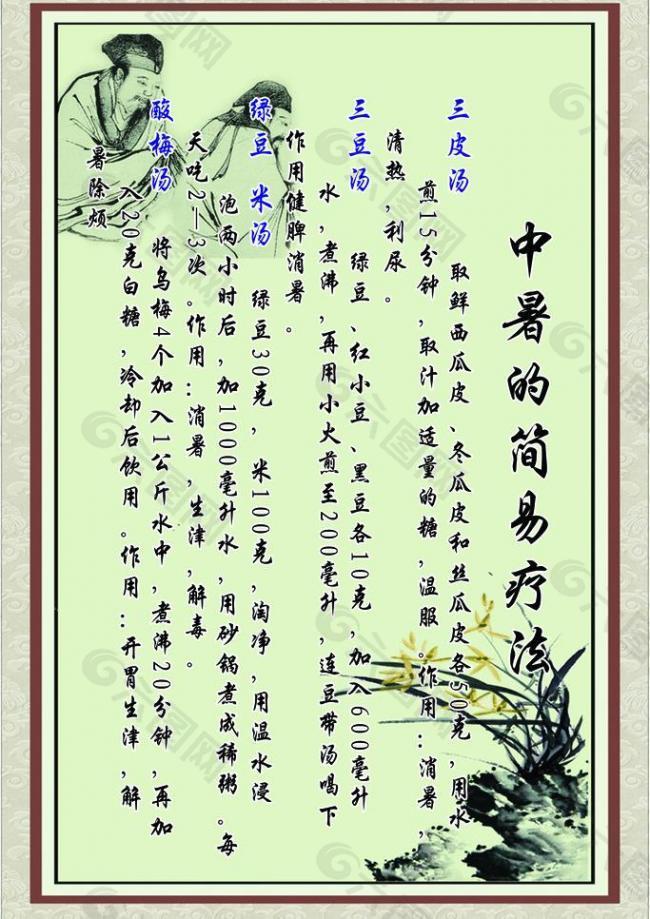 中暑的简易疗法
三皮汤 取鲜西瓜皮、冬瓜皮和丝瓜皮各50克,用水
煎15分钟,取汁加适量的糖,温服。作用::消暑,
清热,利尿。
三豆汤 绿豆、红小豆、黑豆各10克,加入600毫升
水,煮沸,再用小火煎至200毫升,连豆带汤喝下
作用健脾消暑。
绿豆 米汤 绿豆30克, 米100克,淘净,用温水浸
泡两小时后,加1000毫升水,用砂锅煮成稀粥。每
天吃2—3次。作用::消暑,生津,解毒。
酸梅汤 将乌梅4个加入1公斤水中,煮沸20分钟,再加
入20克白糖,冷却后饮用。作用::开胃生津,解
暑除烦
六图网